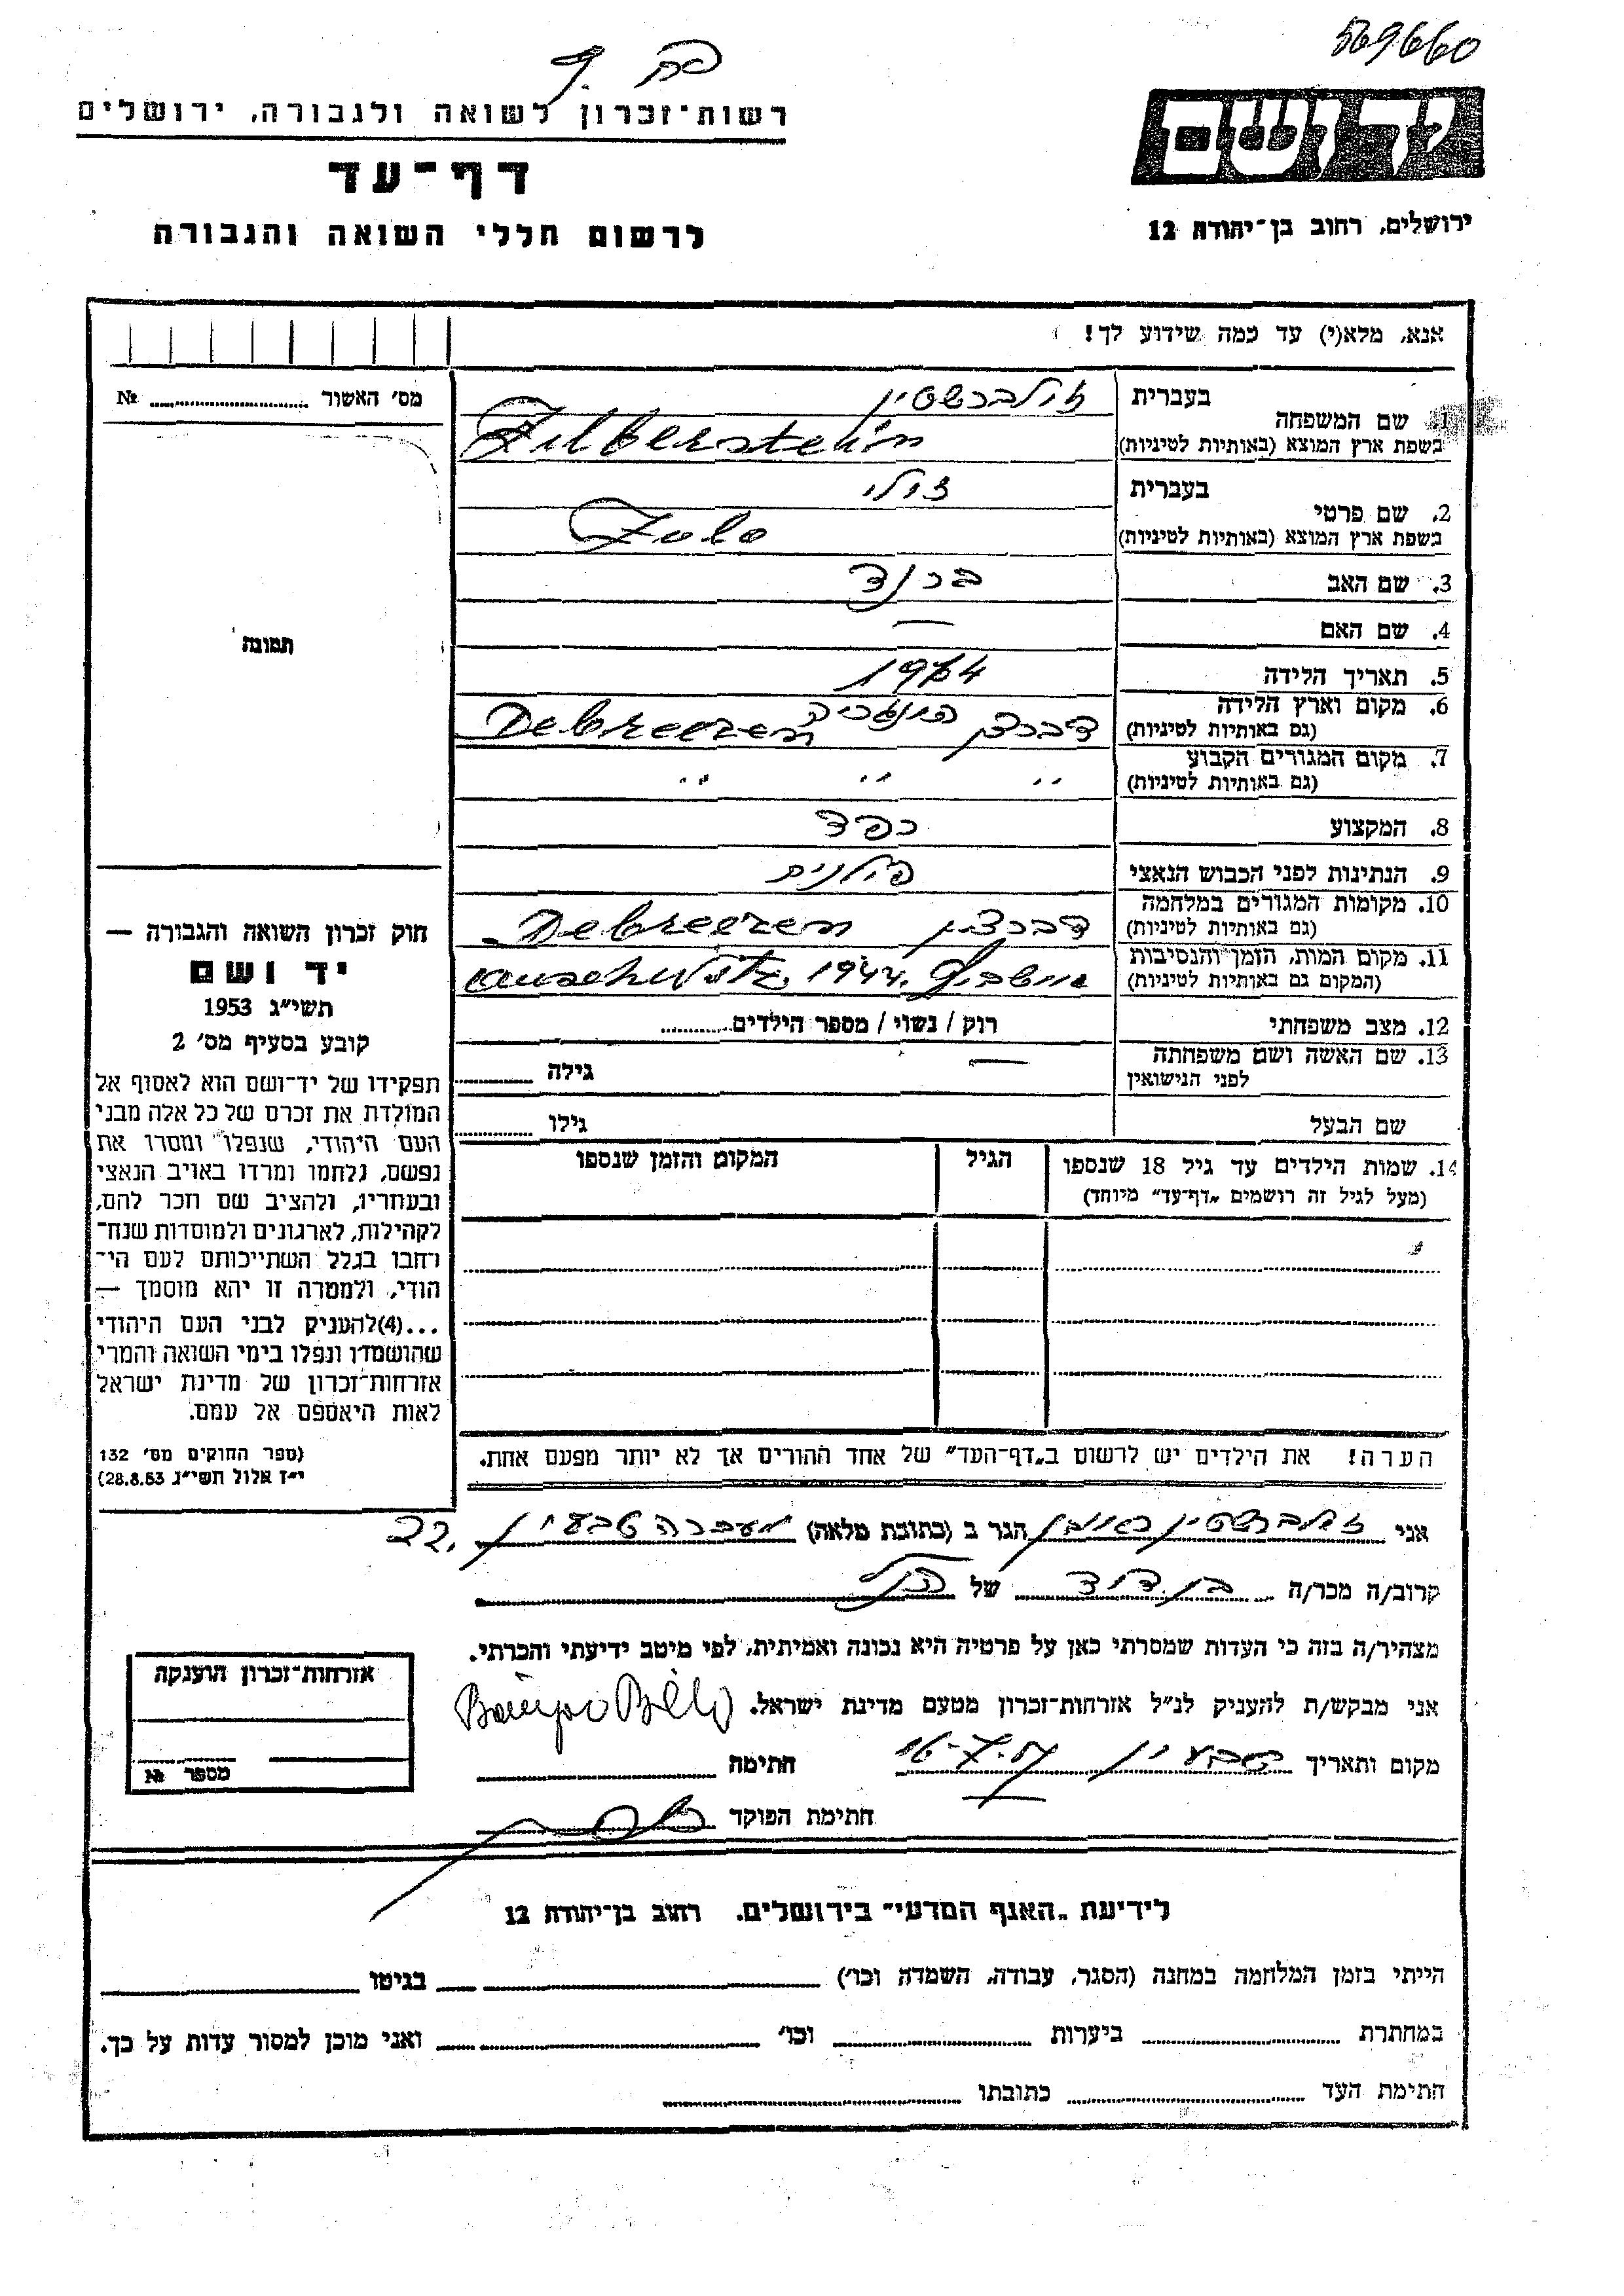 569660
פה. ק
רשות־זכרון לשואה ולגבורה, ירושלים
דף־עד
לרשום חללי השואה והגבורה
יד ושם
ירושלים, רחוב בן־יהודה 12
אנא, מלא(י) עד כמה שידוע לך!
מס׳ האשור № 
תמונה
1. שם המשפחה
בעברית זילברשטיין
בשפת ארץ המוצא (באותיות לטיניות) Zilberstein
2. שם פרטי
בעברית זולי
בשפת ארץ המוצא (באותיות לטיניות) Zulo
3. שם האב ברנד
4. שם האם —
5. תאריך הלידה
6. מקום וארץ הלידה
(גם באותיות לטיניות) דברצן הונגריה Debreczen
7. מקום המגורים הקבוע
(גם באותיות לטיניות) " " "
8. המקצוע רפד
9. הנתינות לפני הכבוש הנאצי פולנית
10. מקומות המגורים במלחמה
(גם באותיות לטיניות) דברצין Debreczen
11. מקום המות, הזמן והנסיבות
(המקום גם באותיות לטיניות) אושביץ auschwitz. 1944.
12. מצב משפחתי רוק / נשוי / מספר הילדים
13. שם האשה ושם משפחתה
לפני הנישואין — גילה
שם הבעל גילו
14. שמות הילדים עד גיל 18 שנספו
(מעל לגיל זה רושמים „דף־עד״ מיוחד)
הגיל
המקום והזמן שנספו
הערה! את הילדים יש לרשום ב„דף־העד״ של אחד ההורים אך לא יותר מפעם אחת.
חוק זכרון השואה והגבורה —
יד ושם
תשי״ג 1953
קובע בסעיף מס׳ 2
תפקידו של יד־ושם הוא לאסוף אל
המולדת את זכרם של כל אלה מבני
העם היהודי, שנפלו ומסרו את
נפשם, נלחמו ומרדו באויב הנאצי
ובעוזריו, ולהציב שם וזכר להם,
לקהילות, לארגונים ולמוסדות שנח־
רחבו בגלל השתייכותם לעם הי־
הודי, ולמטרה זו יהא מוסמך —
...(4)להעניק לבני העם היהודי
שהושמדו ונפלו בימי השואה והמרי
אזרחות־זכרון של מדינת ישראל
לאות היאספם אל עמם.
(ספר החוקים מס׳ 132
י״ז אלול תשי״ג 28.8.53)
אני זילברשטיין ראובן הגר ב (כתובת מלאה) מעברה טבעון 22.
קרוב/ה מכר/ה בן דוד של הנ״ל
מצהיר/ה בזה כי העדות שמסרתי כאן על פרטיה היא נכונה ואמיתית, לפי מיטב ידיעתי והכרתי.
אני מבקש/ת להעניק לנ״ל אזרחות־זכרון מטעם מדינת ישראל.
מקום ותאריך טבעון 16-7-57 חתימה
חתימת הפוקד
אזרחות־זכרון הוענקה
מספר №
לידיעת „האגף המדעי״ בירושלים, רחוב בן־יהודה 12
הייתי בזמן המלחמה במחנה (הסגר, עבודה, השמדה וכו׳) בגיטו
במחתרת ביערות וכו׳ ואני מוכן למסור עדות על כך.
חתימת העד כתובתו